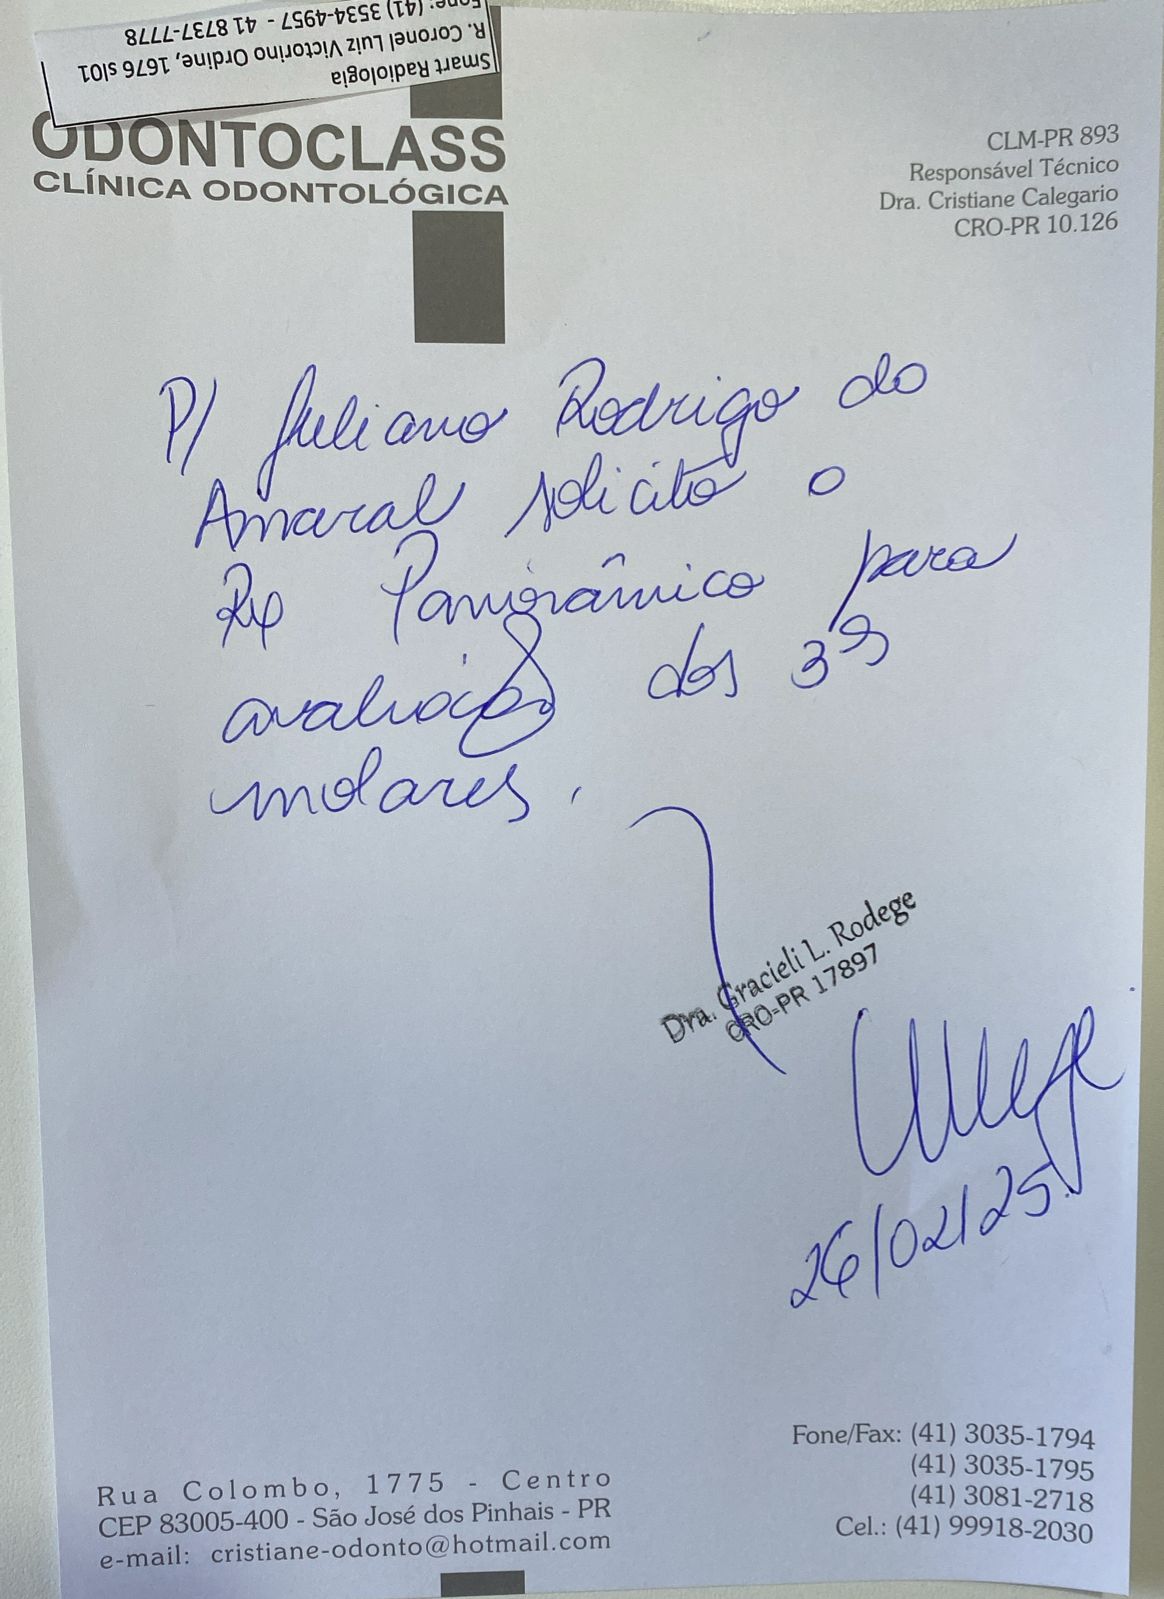 Fone: (41) 3534-4957 - 41 8737-7778
R. Coronel Luiz Victorino Ordine, 1676 sl01
Smart Radiologia
ODONTOCLASS
CLÍNICA ODONTOLÓGICA
CLM-PR 893
Responsável Técnico
Dra. Cristiane Calegario
CRO-PR 10.126
P/ Juliano Rodrigo do
Amaral solicito o
Rx Panorâmico para
avaliação dos 3ºs
molares.
Dra. Gracieli L. Rodege
CRO-PR 17897
26/02/25
Rua Colombo, 1775 - Centro
CEP 83005-400 - São José dos Pinhais - PR
e-mail: cristiane-odonto@hotmail.com
Fone/Fax: (41) 3035-1794
(41) 3035-1795
(41) 3081-2718
Cel.: (41) 99918-2030